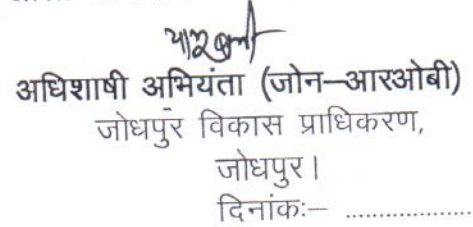 अधिशाषी अभियंता (जोन–आरओबी)
जोधपुर विकास प्राधिकरण,
जोधपुर।
दिनांकः– ..................